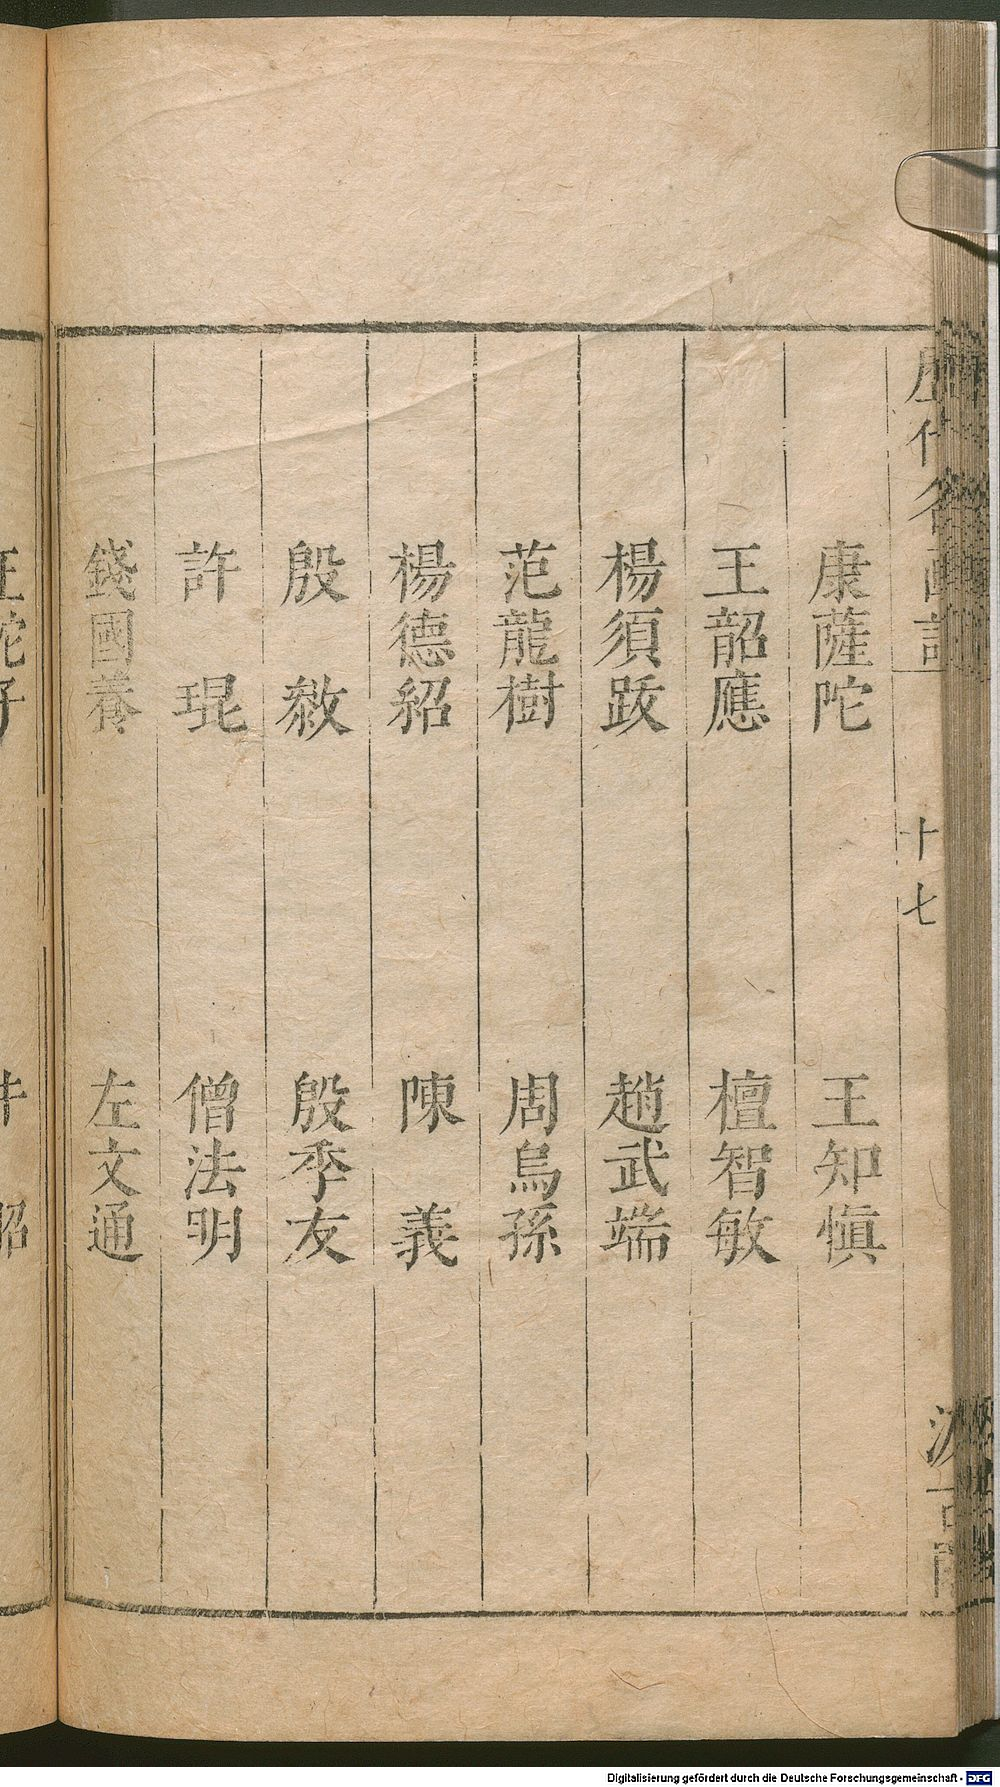 歷代名畫記
十七
汲古閣
康薩陀 王知愼
王韶應 檀智敏
楊須跋 趙武端
范龍樹 周烏孫
楊德紹 陳義
殷㪟 殷季友
許琨 僧法明
錢國養 左文通
Digitalisierung gefördert durch die Deutsche Forschungsgemeinschaft - DFG